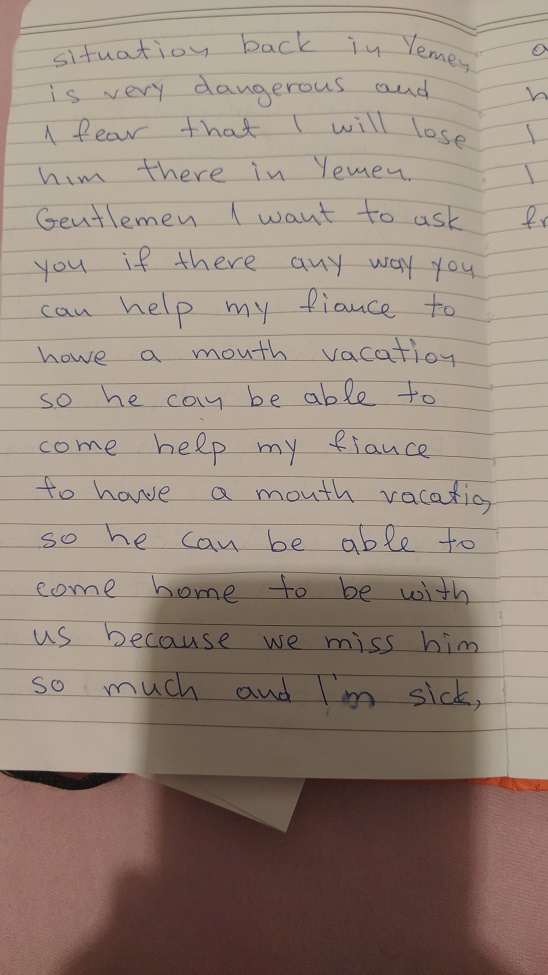 situation back in Yemen
is very dangerous and
I fear that I will lose
him there in Yemen.
Gentlemen I want to ask
you if there any way you
can help my fiance to
have a mouth vacation
so he can be able to
come help my fiance
to have a mouth vacation
so he can be able to
come home to be with
us because we miss him
so much and I'm sick,
a
h
I
I
fr